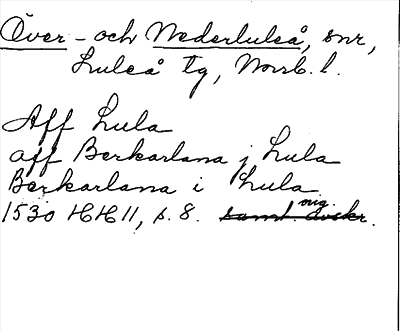 Över- och Nederluleå, snr,
Luleå tg, Norrb. l.
Aff Lula
aff Berkarlana j Lula
Berkarlana i Lula
1530 HH 11, s. 8. samt. avskr. orig.